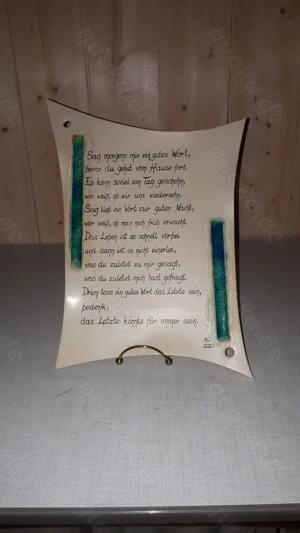 Sag morgens mir ein gutes Wort,
bevor du gehst vom Hause fort.
Es kann soviel am Tag geschehn,
wer weiß, ob wir uns wiedersehn.
Sag lieb ein Wort zur guten Nacht,
wer weiß, ob man noch früh erwacht.
Das Leben ist so schnell vorbei
und dann ist es nicht einerlei,
was du zuletzt zu mir gesagt,
was du zuletzt mich hast gefragt.
Drum lass ein gutes Wort das Letzte sein,
bedenk,
das Letzte könnts für immer sein.
quoka.de